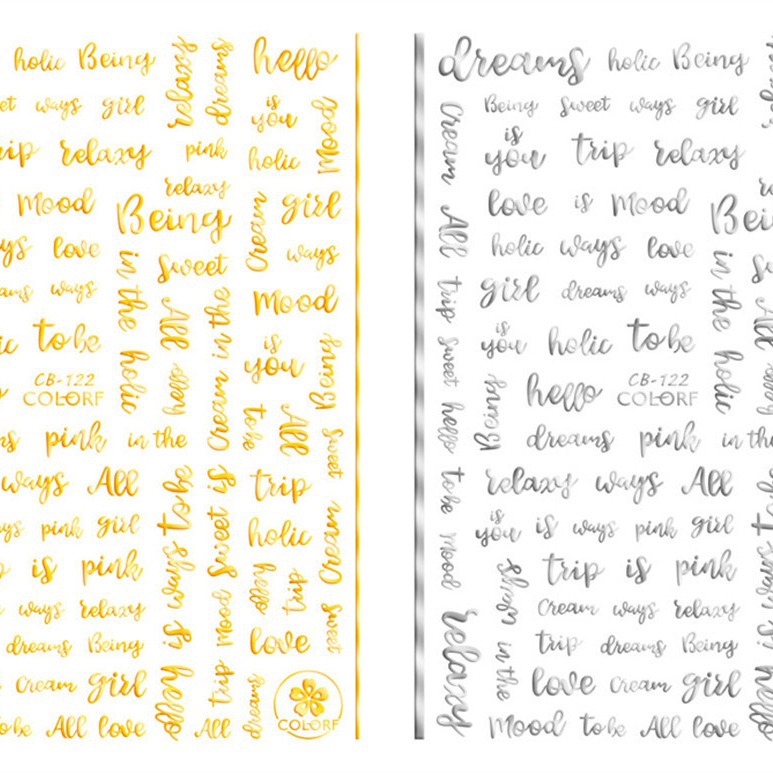 holic Being
ways girl
relaxy
pink
relaxy
Mood
Being
love
Sweet
ways
to be
CB-122
COLORF
pink in the
ways All
pink girl
is pink
ways relaxy
dreams Being
Cream girl
All love
relaxy
dreams
in the holic
All
hello
Cream in the
is ways to be
hello
Sweet is
Mood
trip
All
hello
is
you
Mood
holic
Cream
girl
ways
Mood
is
you
Being
to be
All
Sweet
trip
holic
Cream
hello
trip
love
Sweet
dreams
COLORF
dreams holic Being
Being Sweet ways girl
is
you trip relaxy
love is Mood
holic ways love
girl dreams ways
is
you holic to be
hello
CB-122
COLORF
dreams pink in the
relaxy ways All
is
you is ways pink girl
trip is pink
Cream ways relaxy
trip dreams Being
love Cream girl
Mood to be All love
Cream
All
trip
Sweet
hello
to be
Mood
relaxy
Being
in the
in the holic